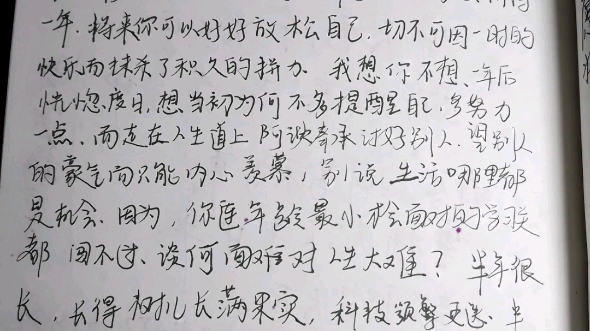 一年.将来你可以好好放松自己,切不可因一时的
快乐而抹杀了积久的拼力.我想你不想一年后
恍惚度日,想当初为何不多提醒自己,多努力
一点、而走在人生道上阿谀奉承讨好别人.望别人
的豪气而只能内心羡慕,别说生活哪里都
是机会.因为,你连年龄最小枪面对的学校
都闯不过、谈何面对人生大难?半年很
长,长得树儿长满果实,科技频繁更迭.